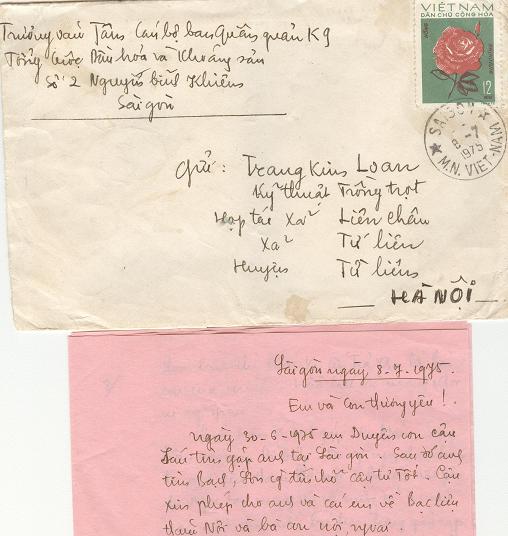 Trương văn Tâm Cán bộ ban Quân quản K9
Tổng cục Dầu hóa và Khoáng sản
Số 2 Nguyễn bỉnh Khiêm
Sàigòn
VIỆT NAM
DÂN CHỦ CỘNG HÒA
12
SAIGON
8-7
1975
M.N. VIET-NAM
Gửi: Trang Kim Loan
Kỹ thuật Trồng trọt
Hợp tác Xã Liên Châu
Xã Tứ liên
Huyện Từ liêm
HÀ NỘI
Sàigòn ngày 8.7.1975.
Em và Con thương yêu!
Ngày 30-6-1975 em Duyên con cậu
Sáu tìm gặp anh tại Sàigòn. Sau đó anh
tìm Bạch, Sơn cậu Tư Tốt. Cậu
xin phép cho anh và em về Bạc liêu
thăm Nội và bà con nội, ngoại.